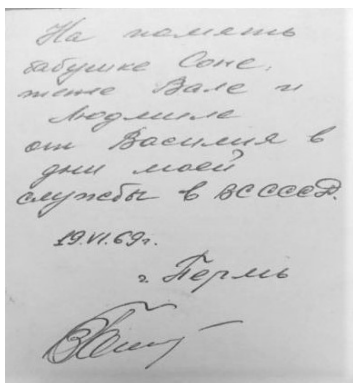 На память
бабушке Соне,
тете Вале и
Людмиле
от Василия в
дни моей
службы в ВС СССР.
19.VI.69г.
г. Пермь